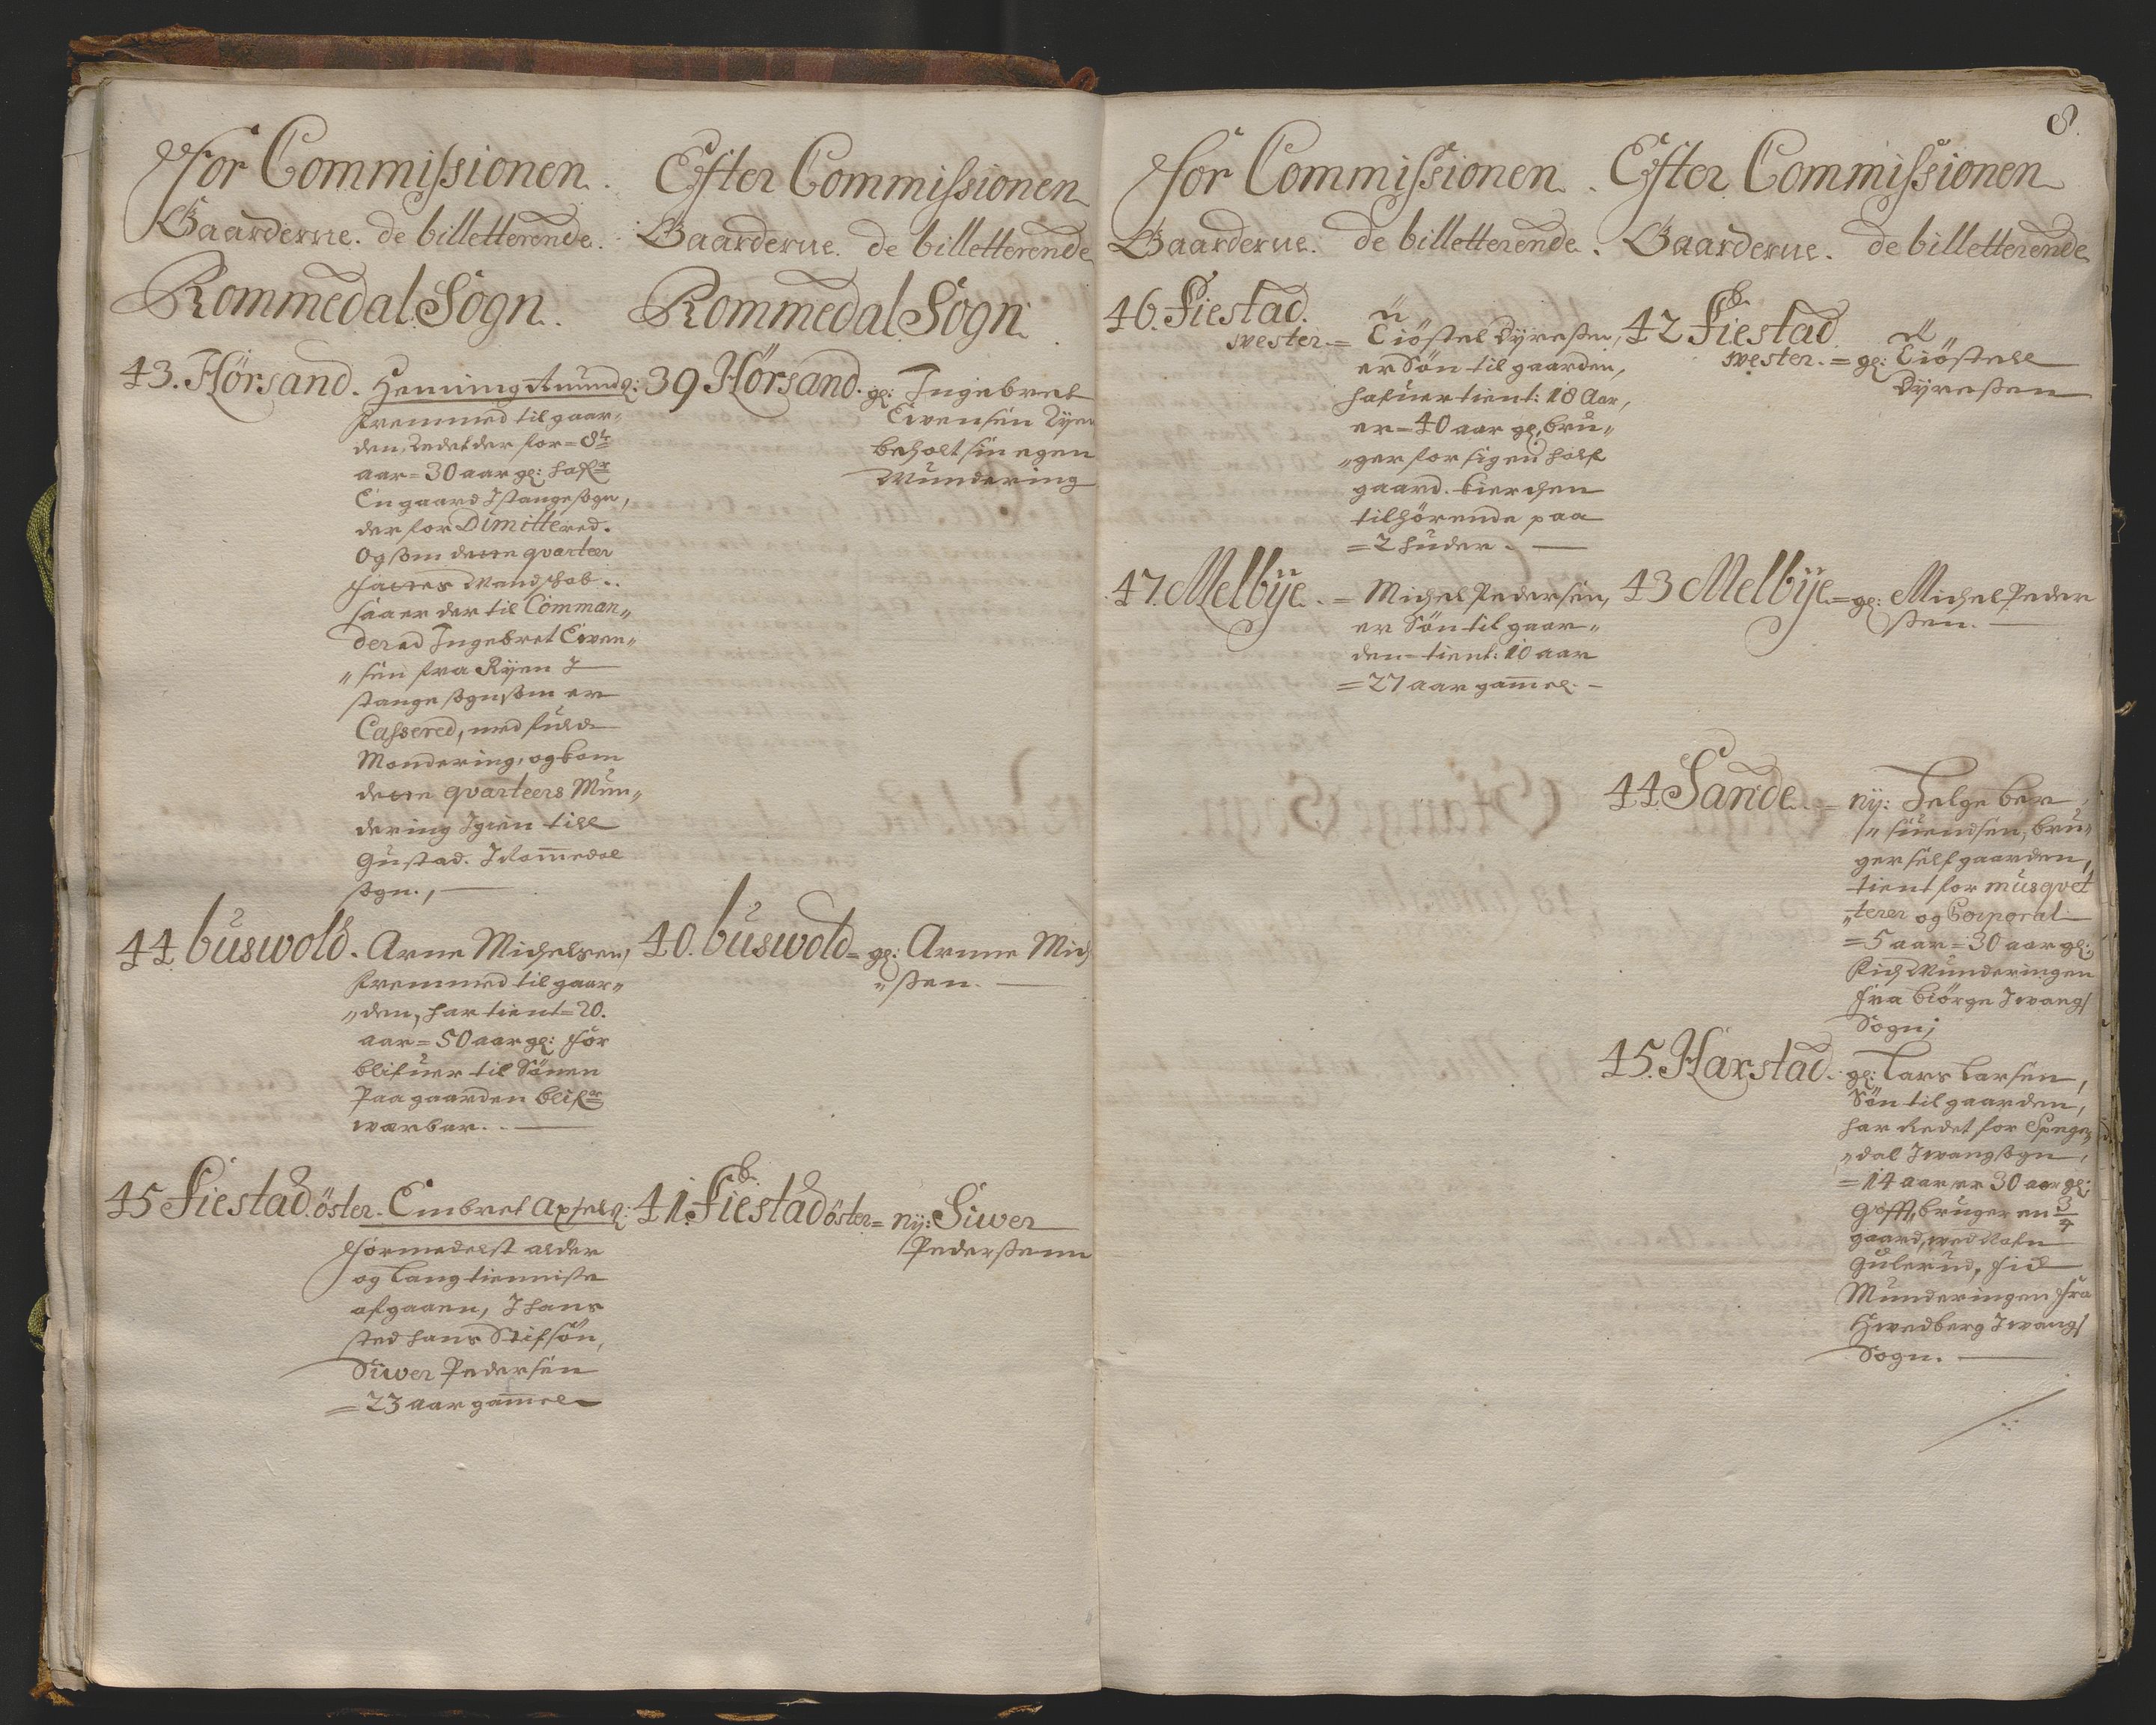 For Commissionen.
Gaarderne. de billetterende.
Rommedal Sogn.
43. Hörsand. Henning Amunds:
fremmed til gaar„
den, Redet der for = 8te
aar = 30 aar gl: hafr
En gaard I stange sogn,
der for Dimittered.
Og som dette qvarteer
fattes Mandskab..
saa er der til Comman„
dered Ingebret Ewen„
„sen fra Ryen I
stange sogn som er
Cassered, med fuld
Mondering, og kom
dette qvarteers Mun„
dering Igien till
Gustad. I Rommedal
sogn.,
44 buswold. Arne Michelsen,
fremmed til gaar„
„den, har tient = 20.
aar = 50 aar gl: för
blifuer til Sönen
Paa gaarden blifr
warbar..
45 Fiestad. öster. Embret Axsels:
formedelst alder
og Lang tienniste
afgaaen, I hans
sted hans Stifsön,
Siwer Pedersen
= 23 aar gam̄el
Efter Commissionen
Gaarderne. de billetterende
Rommedal Sogn
39 Hörsand. gl: Ingebret
Ewensen Ryen
beholt sin egen
Mundering
40. buswold = gl: Arnne Mich
„ssen.
41. Fiestad öster = ny: Siwer
Pederssenn
8.
For Commissionen.
Gaarderne. de billetterende.
46. Fiestad.
wester. = Eiöstel Dyressen,
er Sön til gaarden,
hafuer tient: 18 Aar,
er = 40 aar gl, bru„
„ger for sig en half
gaard. kierchen
tilhörende paa
= 2 huder.
47. Melbÿe. = Michel Pedersen,
er Sön til gaar„
den = tient: 10 aar
= 27 aar gam̄el.
Efter Commissionen
Gaarderne. de billetterende
42 Fiestad
wester. = gl: Eiöstell
Dyressen
43 Melbÿe = gl: Michel Peder
ssen.
44 Sande = ny: Helge ber
„suendsen, bru„
ger self gaarden,
tient for musqvet
„terer og Corporal
= 5 aar = 30 aar gl:
Fich Munderingen
fra biörge I wangs
Sogn;
45. Harstad. gl: Lars Larsen,
Sön til gaarden,
har Redet for
„dal I wang sogn,
= 14 aar er 30 aar gl:
gifft, bruger en 3/4
gaard, wed Nafn
Gulerud, fich
Munderingen fra
Hwedberg I wangs
Sogn.